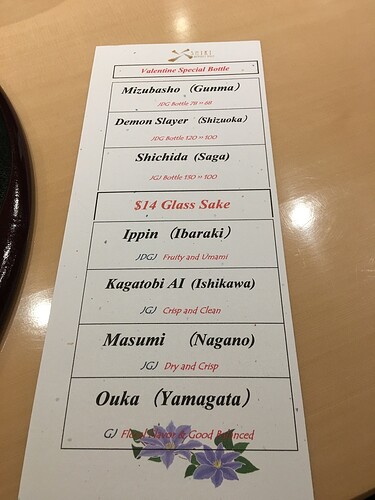 Valentine Special Bottle
Mizubasho (Gunma)
JDG Bottle 78 » 68
Demon Slayer (Shizuoka)
JDG Bottle 120 » 100
Shichida (Saga)
JGJ Bottle 130 » 100
$14 Glass Sake
Ippin (Ibaraki)
JDGJ Fruity and Umami
Kagatobi AI (Ishikawa)
JGJ Crisp and Clean
Masumi (Nagano)
JGJ Dry and Crisp
Ouka (Yamagata)
GJ Floral Flavor & Good Balanced